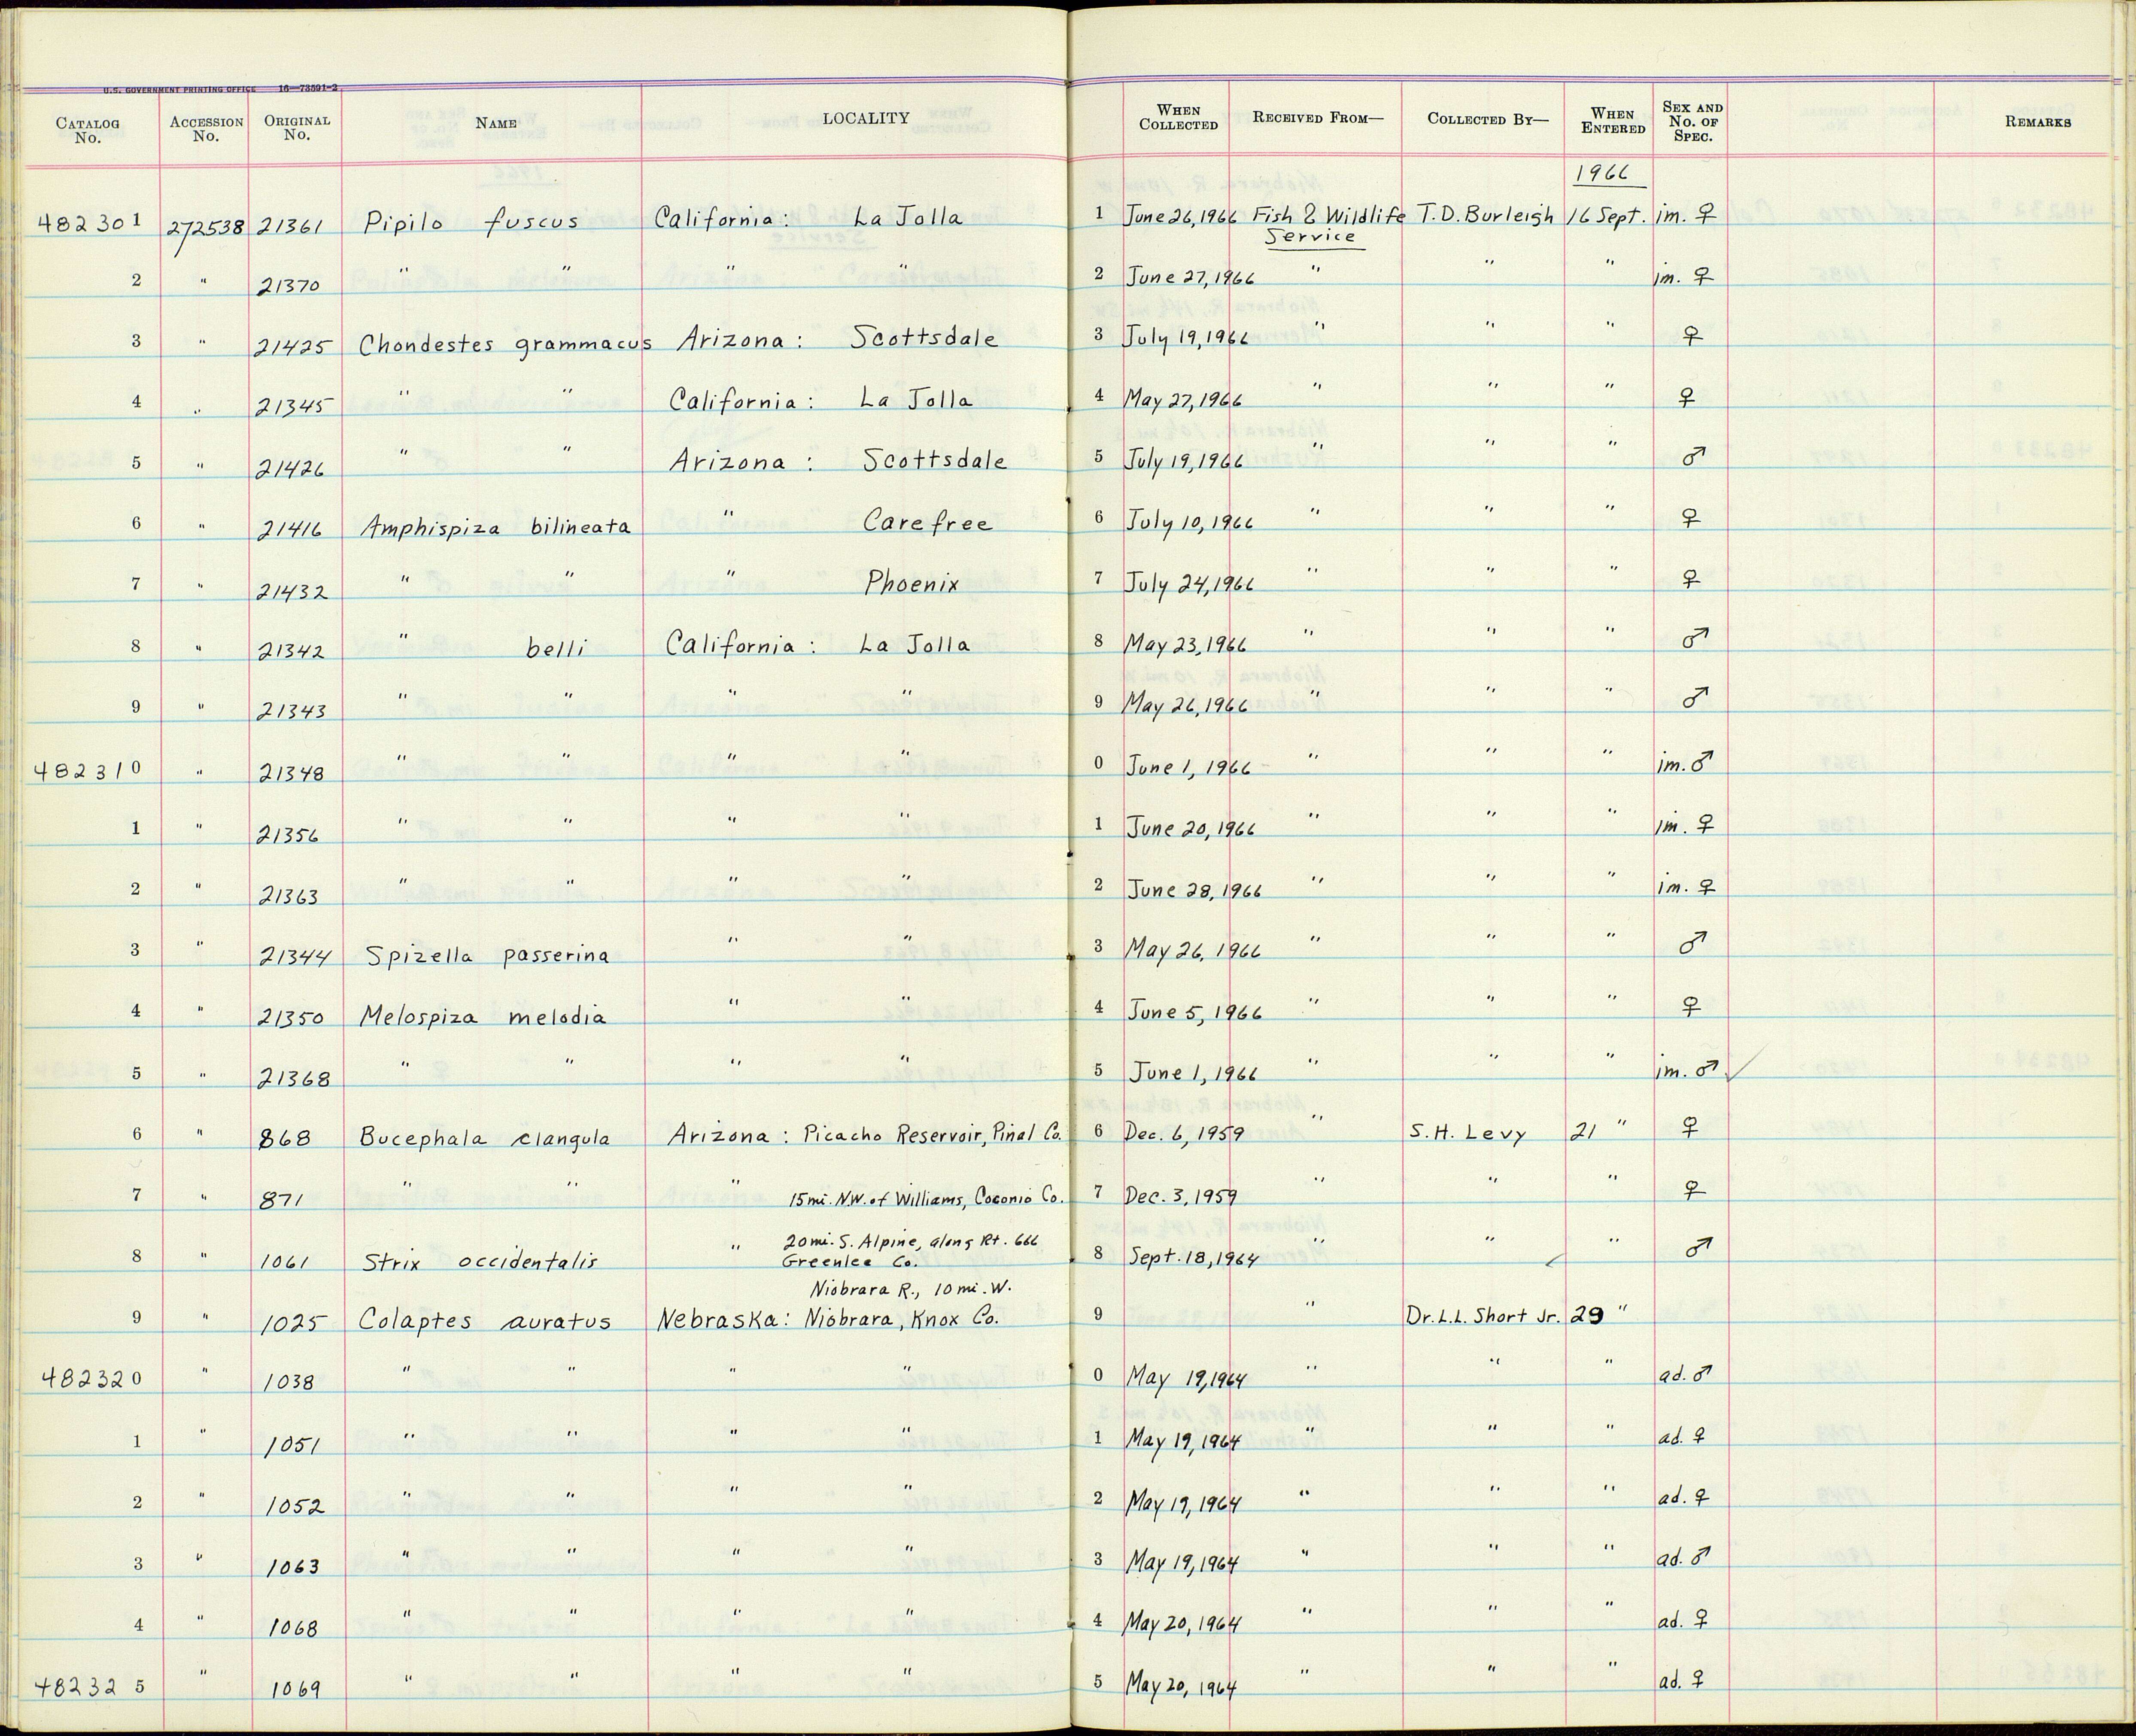 U.S. GOVERNMENT PRINTING OFFICE 16—73591-2
CATALOG No. ACCESSION No. ORIGINAL No. NAME LOCALITY WHEN COLLECTED RECEIVED FROM— COLLECTED BY— WHEN ENTERED SEX AND No. OF SPEC. REMARKS
1966
482301 272538 21361 Pipilo fuscus California: La Jolla 1 June 26, 1966 Fish & Wildlife Service T.D. Burleigh 16 Sept. im. ♀
2 " 21370 " " " " 2 June 27, 1966 " " " im. ♀
3 " 21425 Chondestes grammacus Arizona: Scottsdale 3 July 19, 1966 " " " ♀
4 " 21345 " " California: La Jolla 4 May 27, 1966 " " " ♀
5 " 21426 " " Arizona: Scottsdale 5 July 19, 1966 " " " ♂
6 " 21416 Amphispiza bilineata " Carefree 6 July 10, 1966 " " " ♀
7 " 21432 " " " Phoenix 7 July 24, 1966 " " " ♀
8 " 21342 " belli California: La Jolla 8 May 23, 1966 " " " ♂
9 " 21343 " " " " 9 May 26, 1966 " " " ♂
482310 " 21348 " " " " 0 June 1, 1966 " " " im. ♂
1 " 21356 " " " " 1 June 20, 1966 " " " im. ♀
2 " 21363 " " " " 2 June 28, 1966 " " " im. ♀
3 " 21344 Spizella passerina " " 3 May 26, 1966 " " " ♂
4 " 21350 Melospiza melodia " " 4 June 5, 1966 " " " ♀
5 " 21368 " " " " 5 June 1, 1966 " " " im. ♂ ✓
6 " 868 Bucephala clangula Arizona: Picacho Reservoir, Pinal Co. 6 Dec. 6, 1959 " S.H. Levy 21 " ♀
7 " 871 " " " 15 mi. N.W. of Williams, Coconio Co. 7 Dec. 3, 1959 " " " ♀
8 " 1061 Strix occidentalis " 20 mi. S. Alpine, along Rt. 666 Greenlee Co. 8 Sept. 18, 1964 " " " ♂
Niobrara R., 10 mi. W.
9 " 1025 Colaptes auratus Nebraska: Niobrara, Knox Co. 9 " Dr. L.L. Short Jr. 29 "
482320 " 1038 " " " " 0 May 19, 1964 " " " ad. ♂
1 " 1051 " " " " 1 May 19, 1964 " " " ad. ♀
2 " 1052 " " " " 2 May 19, 1964 " " " ad. ♀
3 " 1063 " " " " 3 May 19, 1964 " " " ad. ♂
4 " 1068 " " " " 4 May 20, 1964 " " " ad. ♀
482325 " 1069 " " " " 5 May 20, 1964 " " " ad. ♀